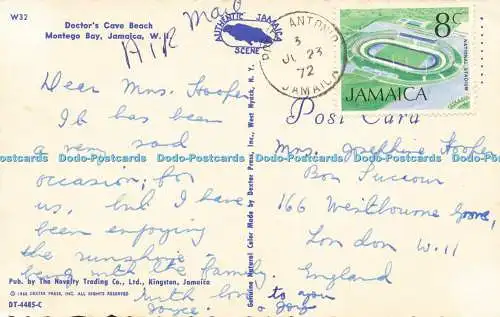 W32
Doctor's Cave Beach
Montego Bay, Jamaica, W. I.
AIR MAIL
AUTHENTIC JAMAICA
SCENE
PORT ANTONIO
3
JL 23
72
JAMAICA
8c
NATIONAL STADIUM
JAMAICA
Dear Mrs. Hooper
It has been
a very sad
occasion, for
us, but I have
been enjoying
the sunshine &
being with the family.
with love to you
Joyce & Joy
Post Card
Mrs. Josephine Hooper
Bon Succour
166 Westbourne Grove,
London W.11
England
Pub. by The Novelty Trading Co., Ltd., Kingston, Jamaica
© 1965 DEXTER PRESS, INC. ALL RIGHTS RESERVED
DT-4485-C
Genuine Natural Color Made by Dexter Press, Inc., West Nyack, N. Y.
Dodo-Postcards Dodo-Postcards Dodo-Postcards Dodo-Postcards Dodo-Postcards